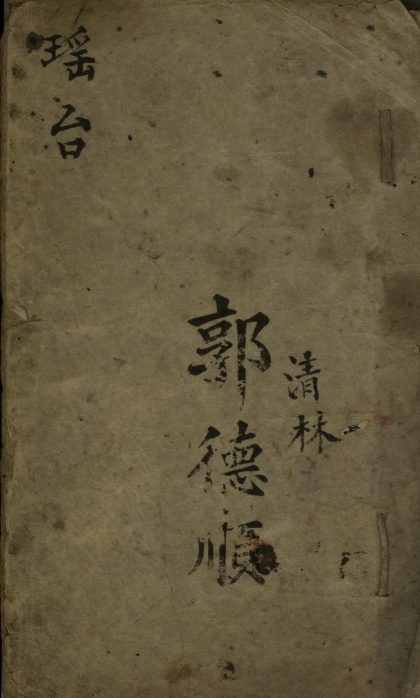 瑶台
郭德順
清林